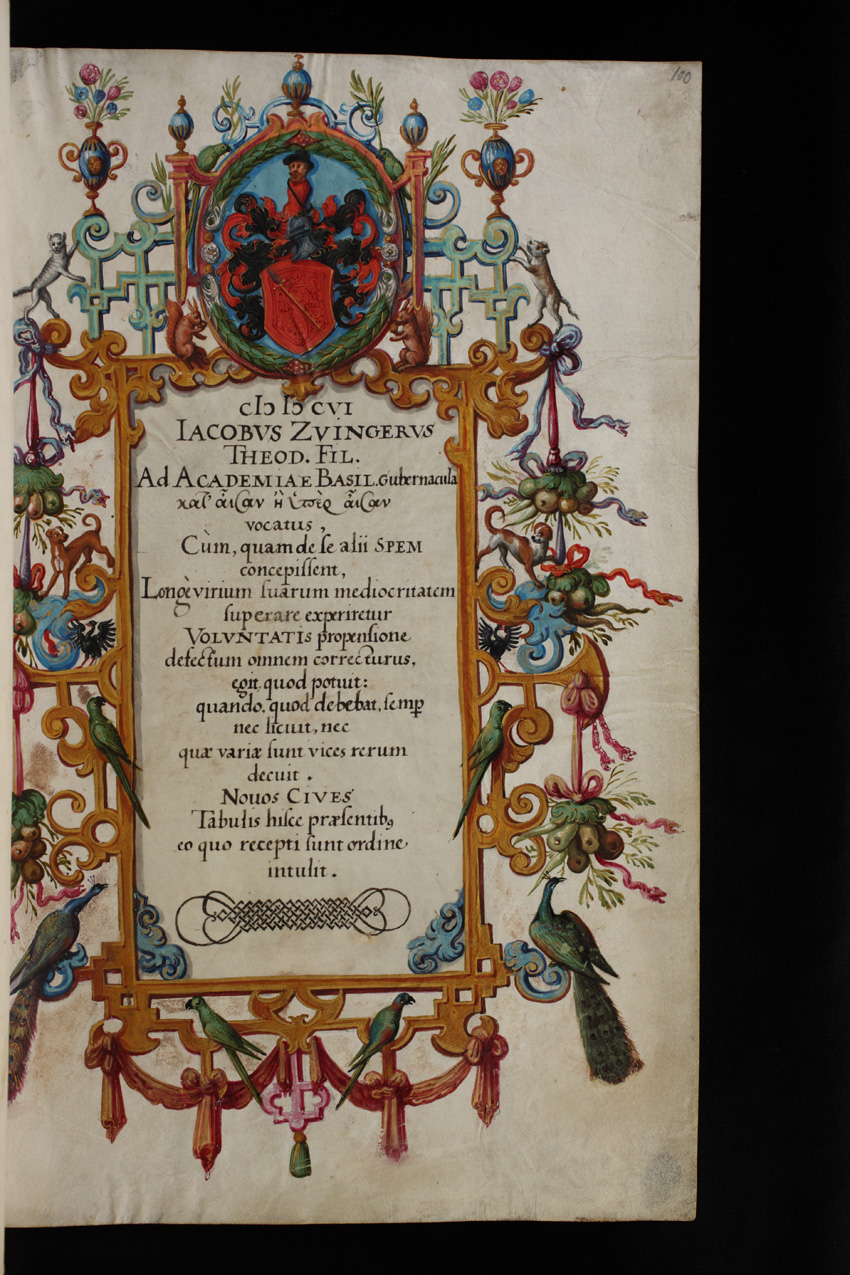 100
cIɔ Iɔ CVI
IACOBVS ZVINGERVS
THEOD. FIL.
Ad ACADEMIAE BASIL. Gubernacula
κατ' αἶσαν ἢ ὑπὲρ αἶσαν
vocatus,
Cùm, quam de se alii SPEM
concepissent,
Longè virium suarum mediocritatem
superare experiretur
VOLVNTATIS propensione
defectum omnem correcturus,
egit quod potuit:
quando, quod debebat, semp
nec licuit, nec
quæ variæ sunt vices rerum
decuit.
NOVOS CIVES
Tabulis hisce præsentibꝰ
eo quo recepti sunt ordine
intulit.